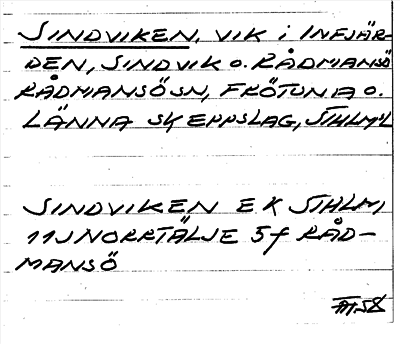 SINDVIKEN, VIK i INFJÄR-
DEN, SINDVIK o. RÅDMANSÖ
RÅDMANSÖSN, FRÖTUNA o.
LÄNNA SKEPPSLAG, STHLM:L
SINDVIKEN EK STHLM,
11J NORRTÄLJE 5f RÅD-
MANSÖ